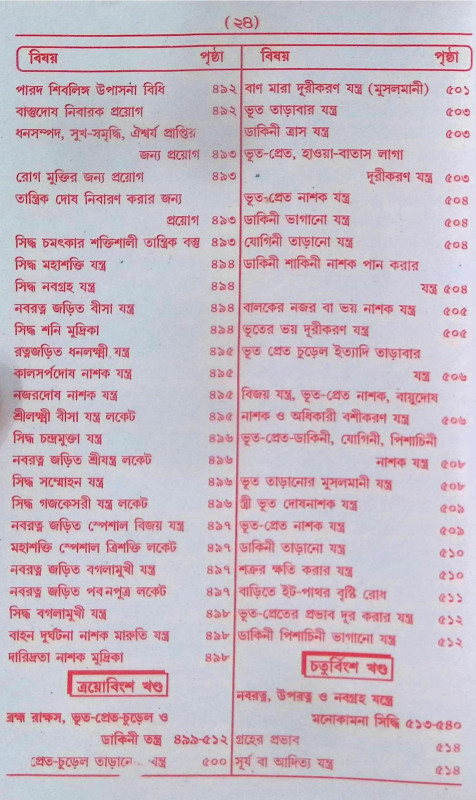 (২৪)
বিষয় পৃষ্ঠা
পারদ শিবলিঙ্গ উপাসনা বিধি ৪৯২
বাস্তুদোষ নিবারক প্রয়োগ ৪৯২
ধনসম্পদ, সুখ-সমৃদ্ধি, ঐশ্বর্য প্রাপ্তির
জন্য প্রয়োগ ৪৯৩
রোগ মুক্তির জন্য প্রয়োগ ৪৯৩
তান্ত্রিক দোষ নিবারণ করার জন্য
প্রয়োগ ৪৯৩
সিদ্ধ চমৎকার শক্তিশালী তান্ত্রিক বস্তু ৪৯৩
সিদ্ধ মহাশক্তি যন্ত্র ৪৯৪
সিদ্ধ নবগ্রহ যন্ত্র ৪৯৪
নবরত্ন জড়িত বীসা যন্ত্র ৪৯৪
সিদ্ধ শনি মুদ্রিকা ৪৯৪
রত্নজড়িত ধনলক্ষ্মী যন্ত্র ৪৯৫
কালসর্পদোষ নাশক যন্ত্র ৪৯৫
নজরদোষ নাশক যন্ত্র ৪৯৫
শ্রীলক্ষ্মী বীসা যন্ত্র লকেট ৪৯৫
সিদ্ধ চন্দ্রমুক্তা যন্ত্র ৪৯৬
নবরত্ন জড়িত শ্রীযন্ত্র লকেট ৪৯৬
সিদ্ধ সম্মোহন যন্ত্র ৪৯৬
সিদ্ধ গজকেসরী যন্ত্র লকেট ৪৯৬
নবরত্ন জড়িত স্পেশাল বিজয় যন্ত্র ৪৯৭
মহাশক্তি স্পেশাল ত্রিশক্তি লকেট ৪৯৭
নবরত্ন জড়িত বগলামুখী যন্ত্র ৪৯৭
নবরত্ন জড়িত পবনপুত্র লকেট ৪৯৭
সিদ্ধ বগলামুখী যন্ত্র ৪৯৮
বাহন দুর্ঘটনা নাশক মারুতি যন্ত্র ৪৯৮
দারিদ্রতা নাশক মুদ্রিকা ৪৯৮
ত্রয়োবিংশ খণ্ড
ব্রহ্ম রাক্ষস, ভূত-প্রেত-চুড়েল ও
ডাকিনী তন্ত্র ৪৯৯-৫১২
প্রেত-চুড়েল তাড়ানে যন্ত্র ৫০০
বিষয় পৃষ্ঠা
বাণ মারা দূরীকরণ যন্ত্র (মুসলমানী) ৫০১
ভূত তাড়াবার যন্ত্র ৫০৩
ডাকিনী ত্রাস যন্ত্র ৫০৩
ভূত-প্রেত, হাওয়া-বাতাস লাগা
দূরীকরণ যন্ত্র ৫০৩
ভূত-প্রেত নাশক যন্ত্র ৫০৪
ডাকিনী ভাগানো যন্ত্র ৫০৪
যোগিনী তাড়ানো যন্ত্র ৫০৪
ডাকিনী শাকিনী নাশক পান করার
যন্ত্র ৫০৪
বালকের নজর বা ভয় নাশক যন্ত্র ৫০৫
ভূতের ভয় দূরীকরণ যন্ত্র ৫০৫
ভূত প্রেত চুড়েল ইত্যাদি তাড়াবার
যন্ত্র ৫০৬
বিজয় যন্ত্র, ভূত-প্রেত নাশক, বায়ুদোষ
নাশক ও অধিকারী বশীকরণ যন্ত্র ৫০৬
ভূত-প্রেত-ডাকিনী, যোগিনী, পিশাচিনী
নাশক যন্ত্র ৫০৮
ভূত তাড়ানোর মুসলমানী যন্ত্র ৫০৮
স্ত্রী ভূত দোষনাশক যন্ত্র ৫০৯
ভূত-প্রেত নাশক যন্ত্র ৫০৯
ডাকিনী তাড়ানো যন্ত্র ৫১০
শত্রুর ক্ষতি করার যন্ত্র ৫১০
বাড়িতে ইট-পাথর বৃষ্টি রোধ ৫১১
ভূত-প্রেতের প্রভাব দূর করার যন্ত্র ৫১২
ডাকিনী পিশাচিনী ভাগানো যন্ত্র ৫১২
চতুর্বিংশ খণ্ড
নবরত্ন, উপরত্ন ও নবগ্রহ যন্ত্রে
মনোকামনা সিদ্ধি ৫১৩-৫৪০
গ্রহের প্রভাব ৫১৪
সূর্য বা আদিত্য যন্ত্র ৫১৪